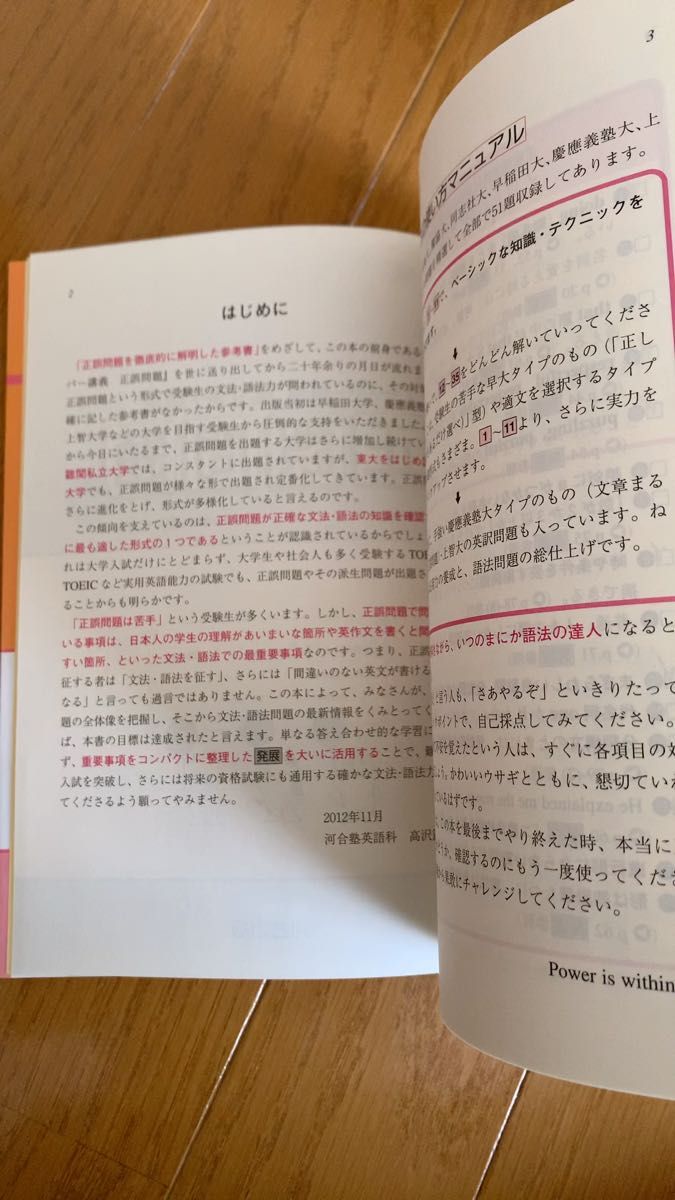 2
はじめに
「正誤問題を徹底的に解明した参考書」をめざして、この本の前身である
バー講義 正誤問題』を世に送り出してから二十年余りの月日が流れま
正誤問題という形式で受験生の文法・語法力が問われているのに、その対
確に記した参考書がなかったからです。出版当初は早稲田大学、慶應義
上智大学などの大学を目指す受験生から圧倒的な支持をいただきました
から今日にいたるまで、正誤問題を出題する大学はさらに増加し続けてい
難関私立大学では、コンスタントに出題されていますが、東大をはじめ
大学でも、正誤問題が様々な形で出題され定番化してきています。正誤
さらに進化をとげ、形式が多様化していると言えるのです。
この傾向を支えているのは、正誤問題が正確な文法・語法の知識を確認
に最も適した形式の1つであるということが認識されているからでしょ
れは大学入試だけにとどまらず、大学生や社会人も多く受験するTOE
TOEICなど実用英語能力の試験でも、正誤問題やその派生問題が出題さ
ることからも明らかです。
「正誤問題は苦手」という受験生が多くいます。しかし、正誤問題で問
いる事項は、日本人の学生の理解があいまいな箇所や英作文を書くと間
すい箇所、といった文法・語法での最重要事項なのです。つまり、正誤
征する者は「文法・語法を征す」、さらには「間違いのない英文が書ける
なる」と言っても過言ではありません。この本によって、みなさんが、
題の全体像を把握し、そこから文法・語法問題の最新情報をくみとってく
ば、本書の目標は達成されたと言えます。単なる答え合わせ的な学習に
ず、重要事項をコンパクトに整理した 発展 を大いに活用することで、難
入試を突破し、さらには将来の資格試験にも通用する確かな文法・語法力
てくださるよう願ってやみません。
2012年11月
河合塾英語科 高沢
3
い方マニュアル
大、同志社大、早稲田大、慶應義塾大、上
選して全部で51題収録してあります。
で、ベーシックな知識・テクニックを
ます。
～35をどんどん解いていってくださ
受験生の苦手な早大タイプのもの（「正し
るだけ選べ)」型）や適文を選択するタイプ
もさまざま。1～11より、さらに実力を
アップさせます。
手強い慶應義塾大タイプのもの（文章まる
題・上智大の英訳問題も入っています。ね
の養成と、語法問題の総仕上げです。
ながら、いつのまにか語法の達人になると
と言う人も、「さあやるぞ」といきりたって
ポイントで、自己採点してみてください。
不安を覚えたという人は、すぐに各項目の対
う。かわいいウサギとともに、懇切ていか
ているはずです。
、この本を最後までやり終えた時、本当に
うか、確認するのにもう一度使ってくださ
果敢にチャレンジしてください。
Power is within